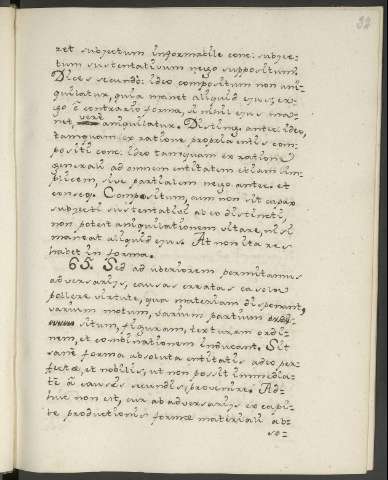 32
ret subjectum informabile conc: subjec-
tum sustentativum nego suppositum.
Dices secundò: ideo compositum non ani-
quilatur, quia manet aliquid ejus, er-
go è contrario forma, si nihil ejus ma-
net, verè aniquilatur. Disting. antec: ideo,
tamquam ex ratione propria entis com-
positi conc: ideo tamquam ex ratione
generali ad omnem entitatem etiam sim-
plicem, sive partialem nego antec. et
conseq. Compositum, cum non sit capax
subjecti sustentativi ab eo distincti,
non potest aniquilationem vitare, nisi
maneat aliquid ejus. At non ita res
habet in forma.
65. Sed ad uberiorem permitamus
adversarijs, causas creatas ea solùm
pollere virtute, qua materiam disponant,
varium motum, varium partium
situm, figuram, texturam ordi-
nem, et combinationem inducant. Sit
sanè forma absoluta entitatis adeo per-
fectæ, et nobilis, ut non possit immedia-
tè à causis secundis provenire. Ad-
huc non est, cur ab adversarijs ex capi-
te productionis formæ materiali ab-
so-